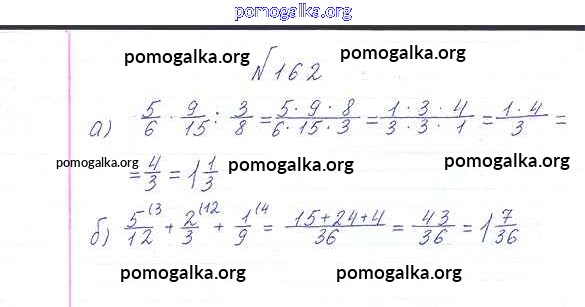 pomogalka.org
pomogalka.org pomogalka.org
№162
а) 5/6 · 9/15 : 3/8 = 5·9·8/6·15·3 = 1·3·4/3·3·1 = 1·4/3 =
pomogalka.org = 4/3 = 1 1/3 pomogalka.org pomogalka.org
б) 5/12 (3 + 2/3 (12 + 1/9 (4 = 15+24+4/36 = 43/36 = 1 7/36
pomogalka.org pomogalka.org